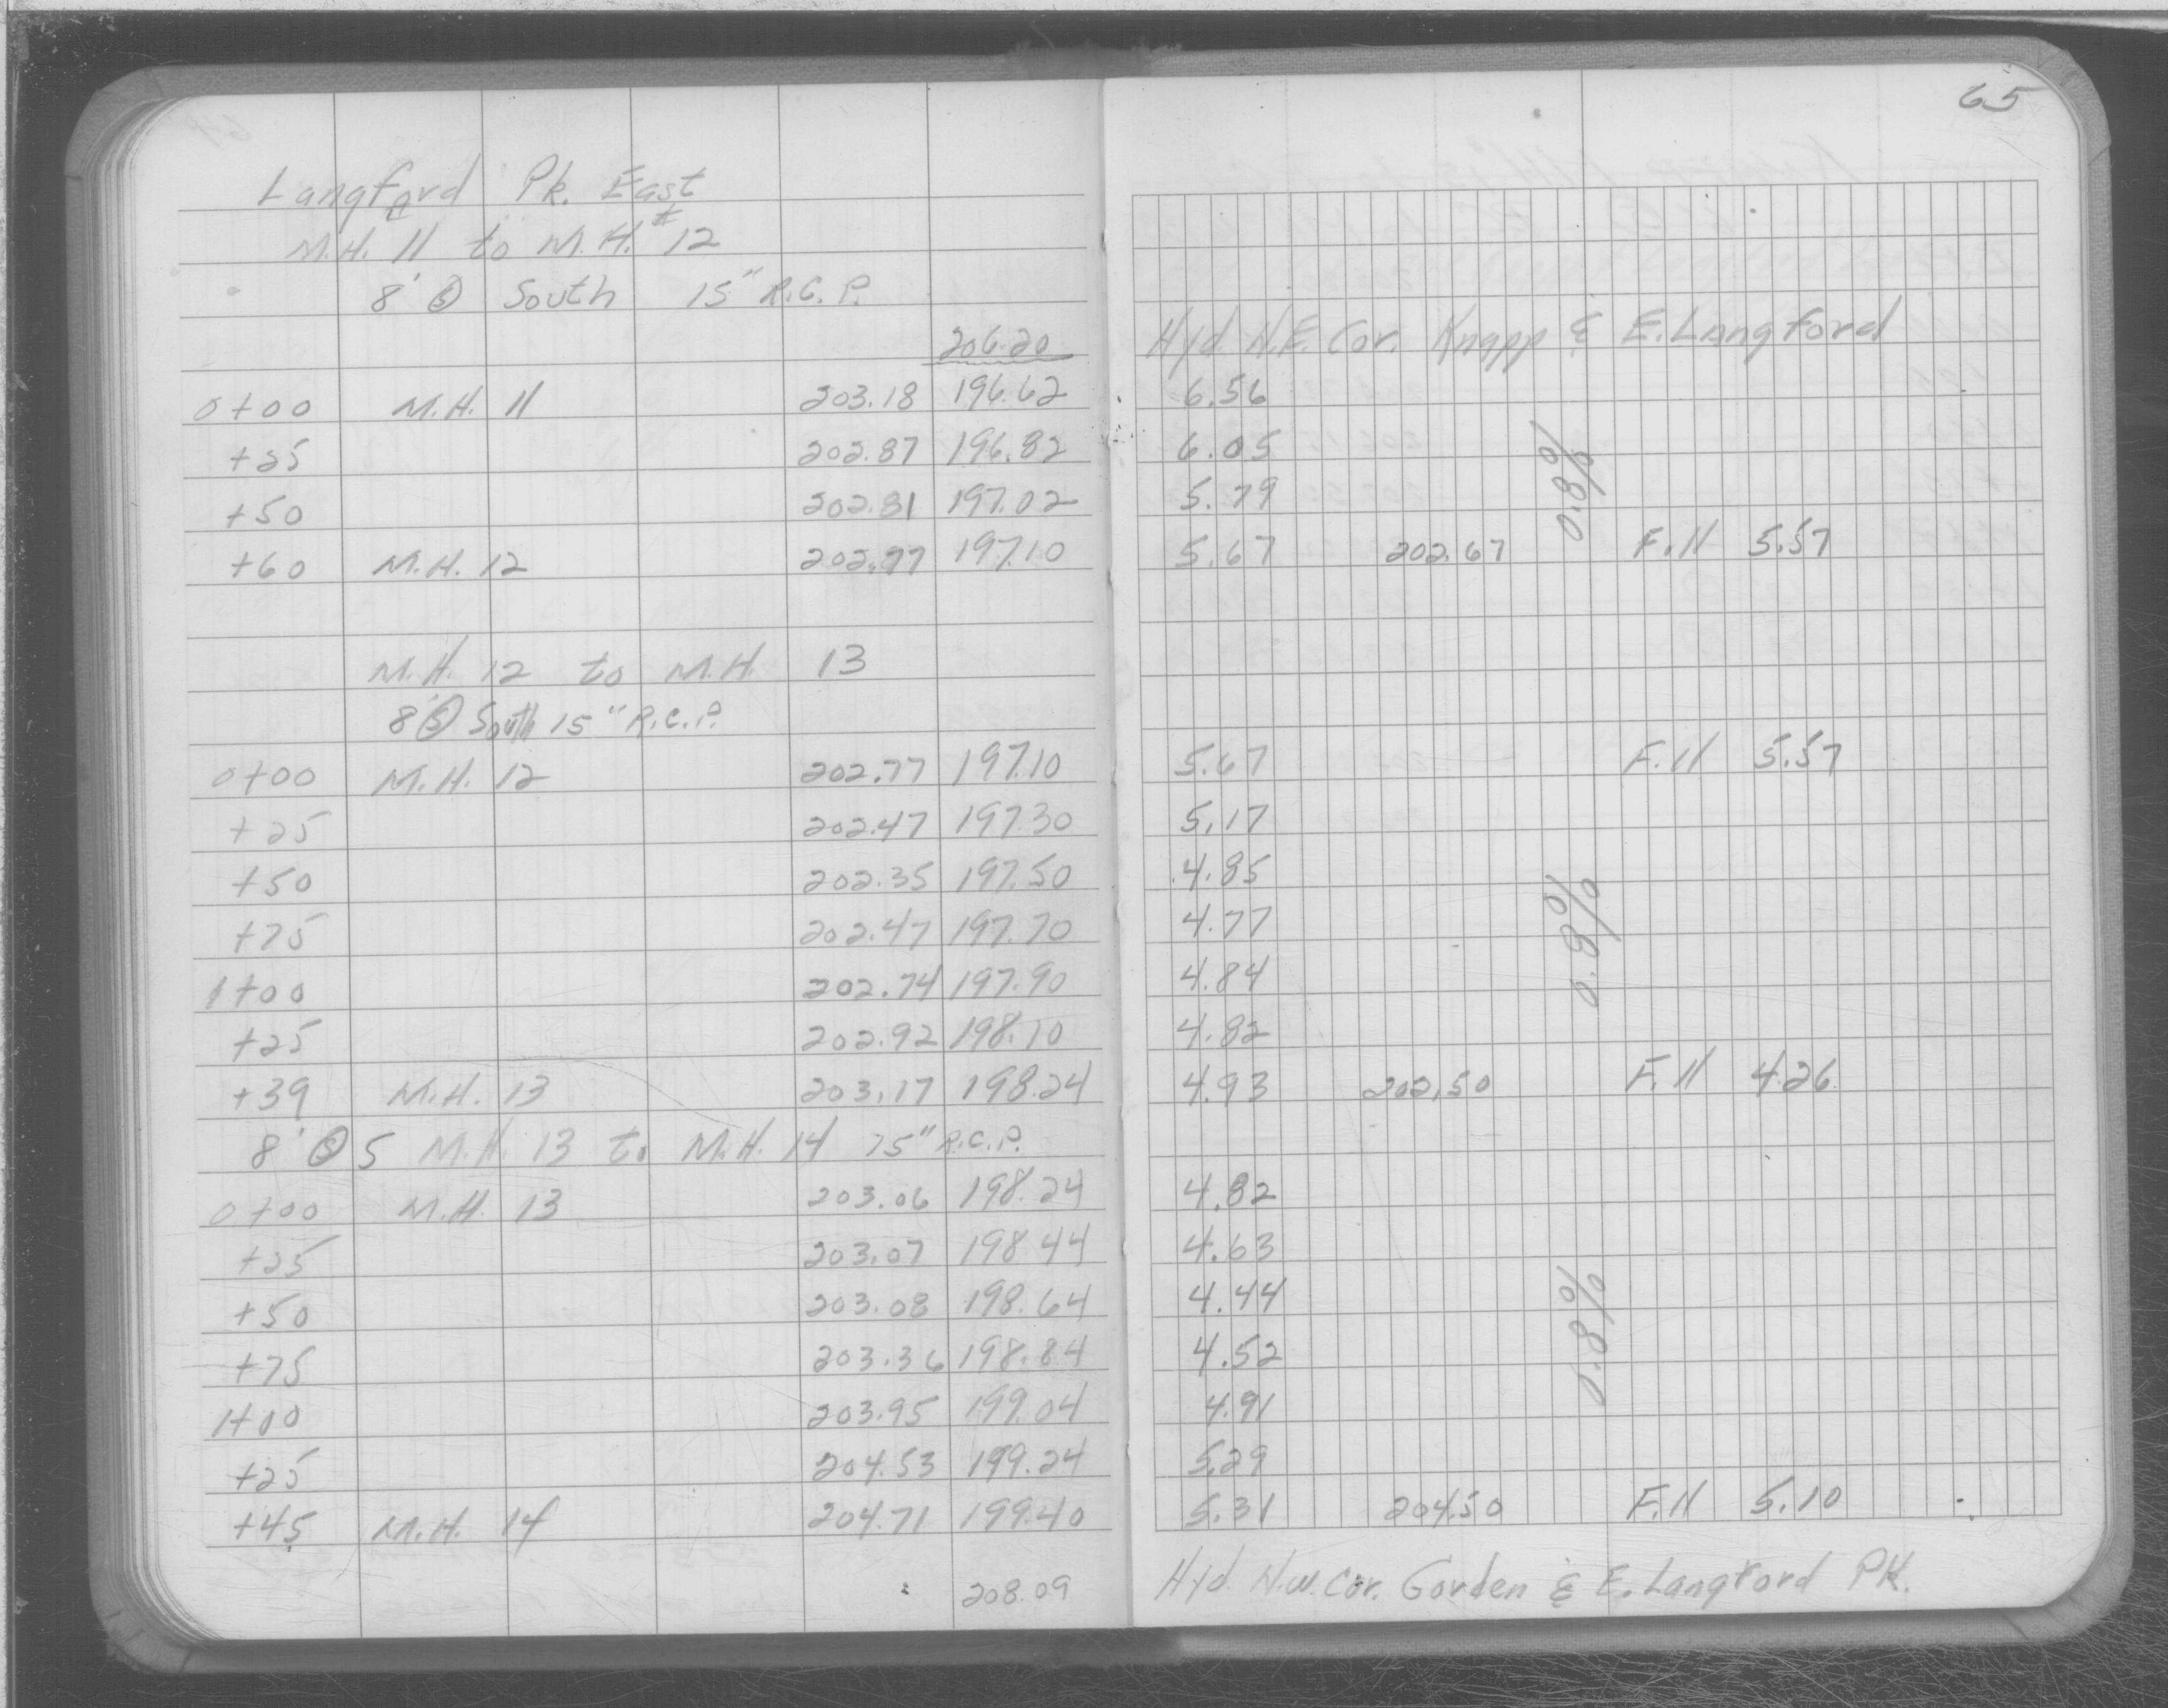 65
Langford Pk. East
M.H. 11 to M.H. #12
8' Ⓢ South 15" R.C.P.
206.20 Hyd. N.E. Cor. Knapp & E. Langford
0+00 M.H. 11 203.18 196.62 6.56
+25 202.87 196.82 6.05
+50 202.81 197.02 5.79
+60 M.H. 12 202.77 197.10 5.67 202.67 F.ll 5.57
0.8%
M.H. 12 to M.H. 13
8' Ⓢ South 15" R.C.P.
0+00 M.H. 12 202.77 197.10 5.67 F.ll 5.57
+25 202.47 197.30 5.17
+50 202.35 197.50 4.85
+75 202.47 197.70 4.77
1+00 202.74 197.90 4.84
+25 202.92 198.10 4.82
+39 M.H. 13 203.17 198.24 4.93 202.50 F.ll 4.26
0.8%
8' Ⓢ S M.H. 13 to M.H. 14 15" R.C.P.
0+00 M.H. 13 203.06 198.24 4.82
+25 203.07 198.44 4.63
+50 203.08 198.64 4.44
+75 203.36 198.84 4.52
1+00 203.95 199.04 4.91
+25 204.53 199.24 5.29
+45 M.H. 14 204.71 199.40 5.31 204.50 F.ll 5.10
0.8%
208.09 Hyd. N.W. Cor. Gorden & E. Langford PK.